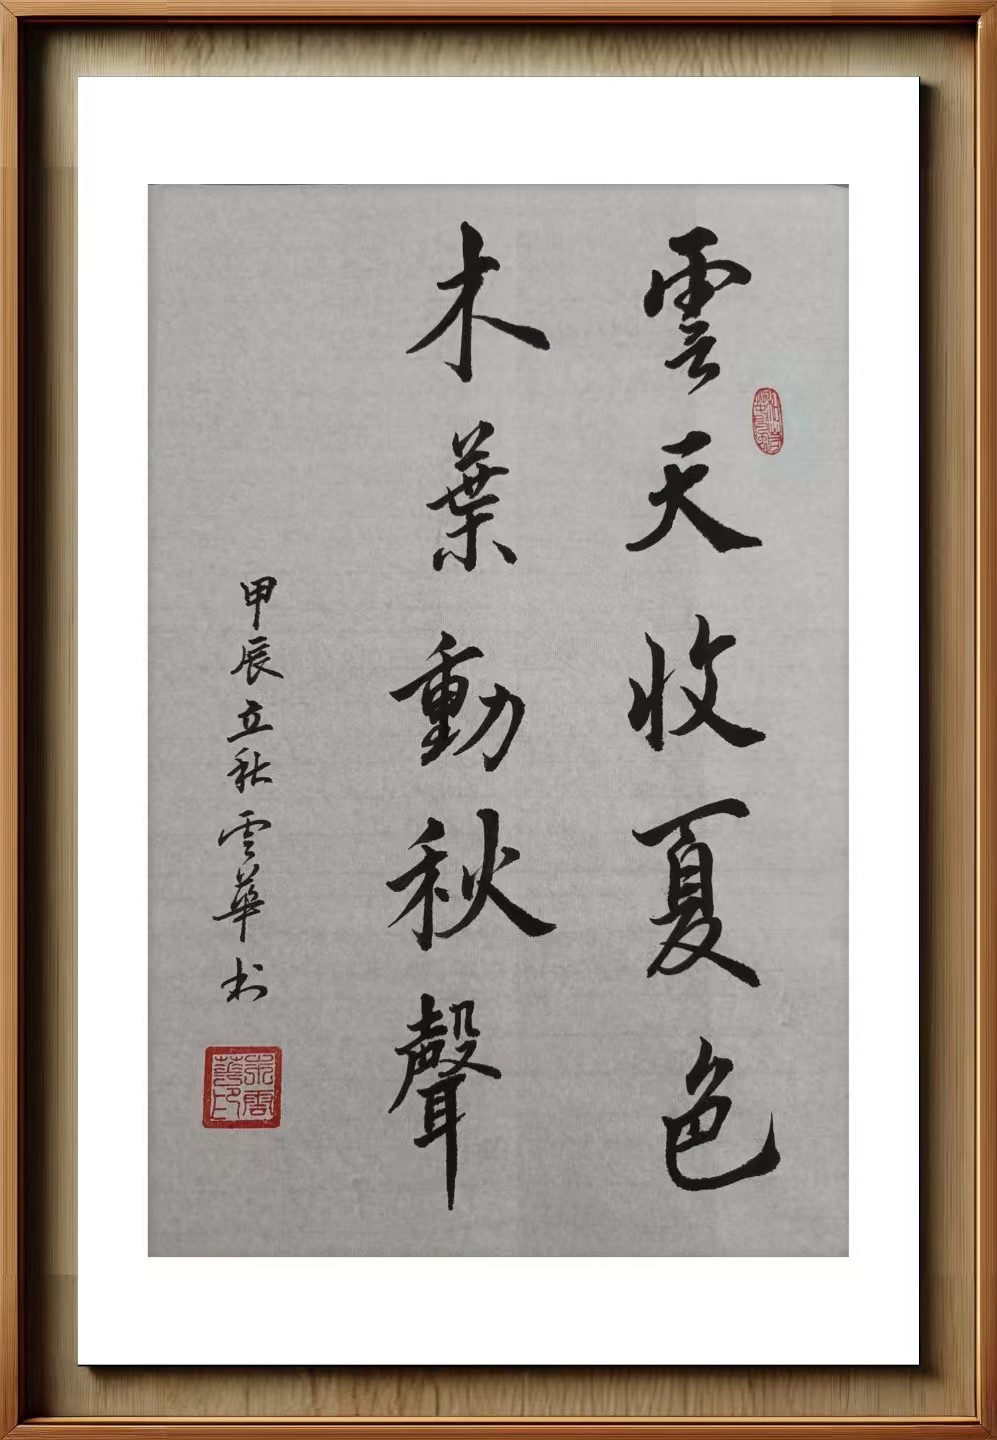 雲天收夏色
木葉動秋聲
甲辰立秋雲華书